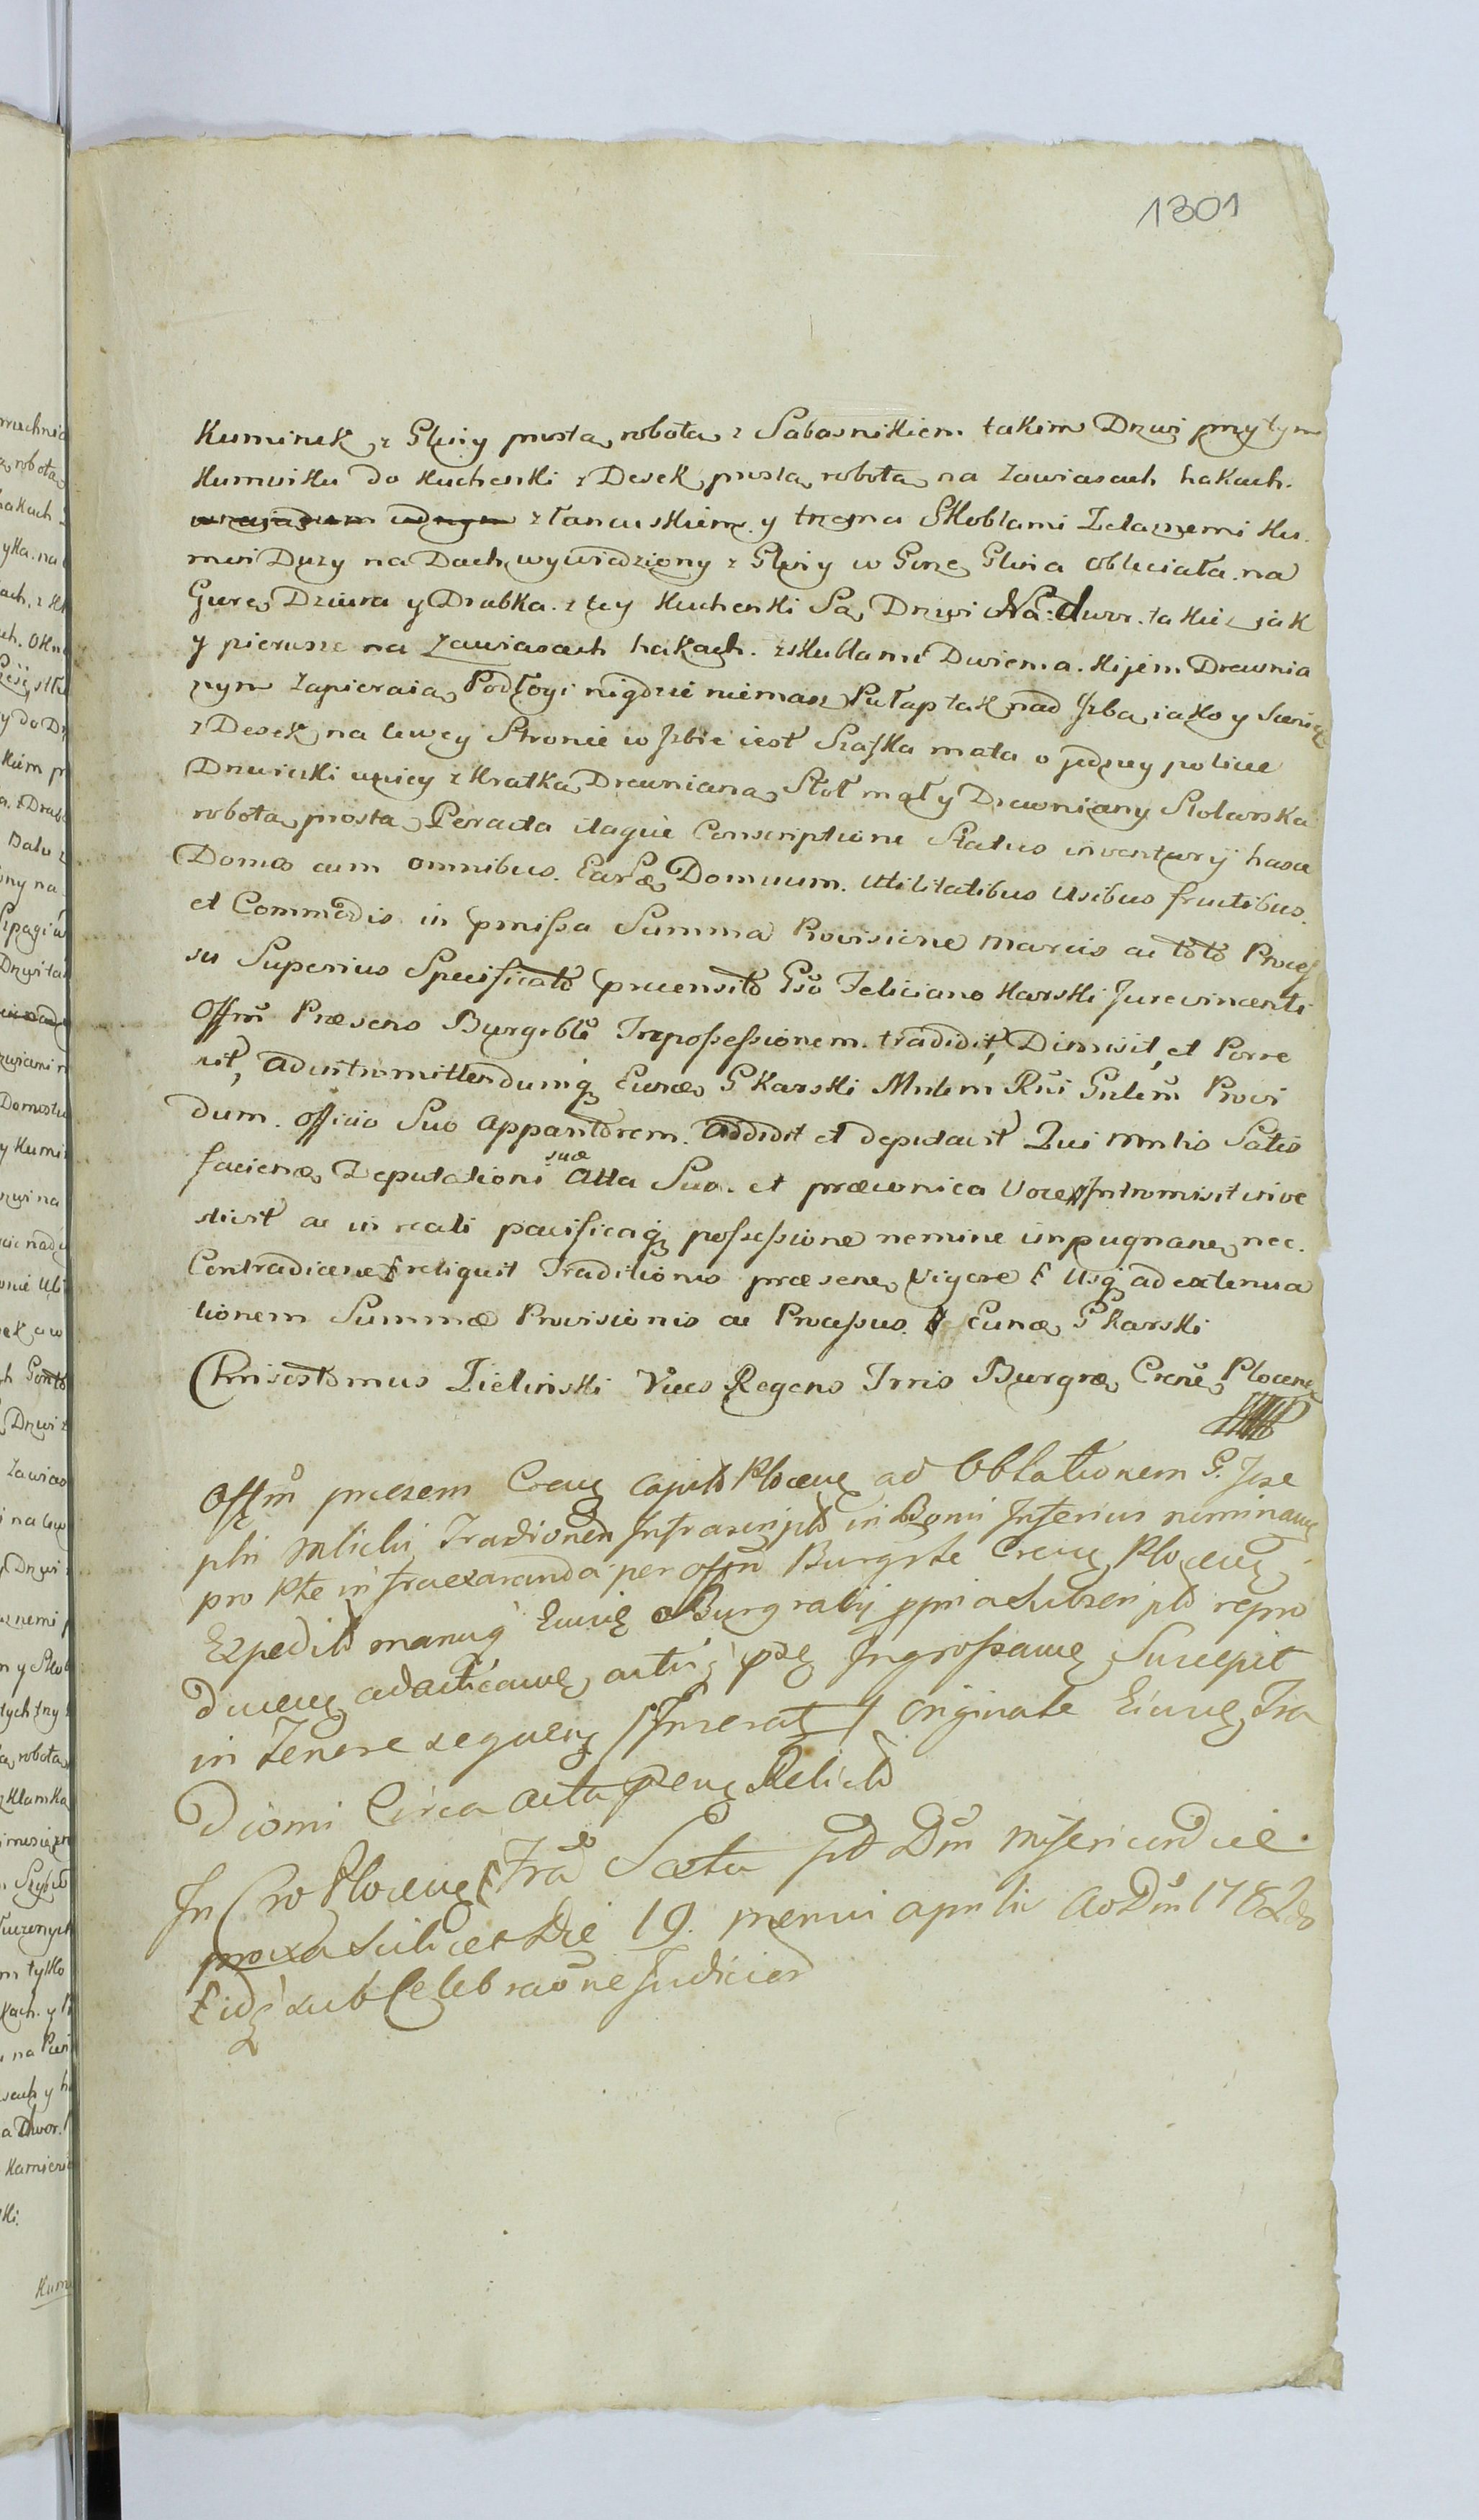 1301
Kuminek z Gliny prostą robotą z Sabasnikiem takim Drzwi przy tym
Kuminku do Kuchenki z Desek prostą robotą na zawiasach hakach.
z łancuskiem y trzema Skoblami Zelaznemi Ku-
min Duzy na Dach wywiedziony z Gliny w Gorze Glina obleciała na
Gure Dziura y Drabka z tey Kuchenki Są Drzwi Na dwor takiez jak
y pierwsze na zawiasach hakach. z skublami Dwiema Kijem Drewnia
nym Zapieraią Podłogi nigdzie niemasz Pułap tak nad Jzbą iako y Sienią
z Desek na lewey Stronie w Jzbie iest Szafka mała o jedney police
Drzwiczki u niey z Kratką Drewnianą Stoł mały Drewniany Stolarską
robotą prostą Peracta itaque Conscriptione Status inventarij hasce
Domos cum omnibus Earndę Domuum utilitatibus Usibus fructibus
et Commodis in pmissa Summa Provisione Marcis ac toto Proces
su Superius Specificato praevensito Gso Feliciano Karski Jurevincenti
Offm Praesens Burgrble Inpossessionem tradidit, Dimisit, et Porre
xit, ad intromittendumq Eundę G Karski Mnlem Rni Gnlem Provi
dum Officio Suo Apparitorem Addidit et deputavit Qui Mnlis Satis
faciens Deputationi suæ Alta Sua et præconica Voce Intromisit inve
stivit ac in reali pacificaq possessione nemine impugnane nec
Contradicene reliquit Traditionis præsenę vigore Usq ad extenua
tionem Summæ Provisionis ac Processus Eundę G Karski
Chrisostomus Zielinski Vices Regens Trris Burgræ Crenę Plocenę
Offm praesens Crenę Capitł Plocenę ad Oblationem G. Jose
phi Tradionem Infrascriptł in Bonis Inferius nominanę
pro Pte infraexaranda per offm Burgrle Crenę Plocenę
Expeditł manuq Eiusdę Burgrabij ppria Subscriptł repro
ducenę adacticanę actisq psę Ingrossanę Suscepit
in Tenore sequenę Inseratę originale Eiusdę Tra
Dioni Circa acta psenę Relictł
In Cro Plocenę Frã Scxta pt Dm Misericordiæ
proxa scilicet Die 19. mensis aprilis Ao Dni 1782do
sub Celebraone Judicior